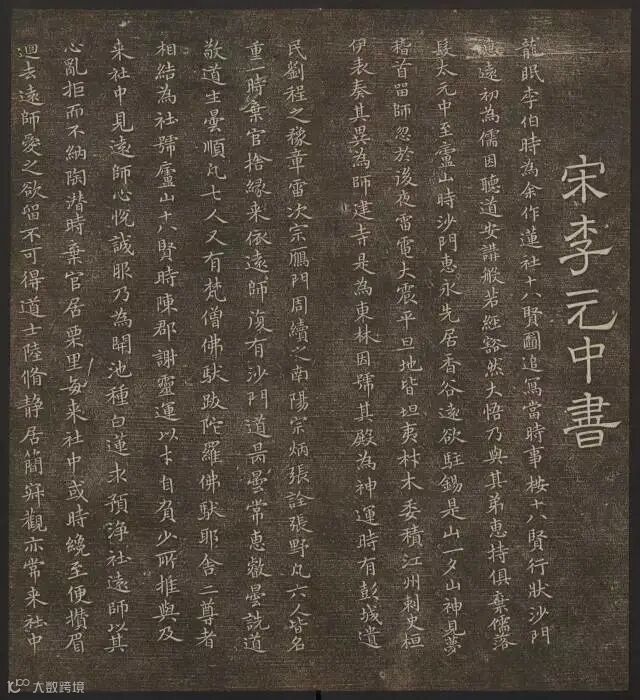 宋李元中書
龍眠李伯時為余作蓮社十八賢圖追寫當時事按十八賢行狀沙門
惠遠初為儒因聽道安講般若經豁然大悟乃與其弟惠持俱棄儒落
髮太元中至廬山時沙門惠永先居香谷遠欲駐錫是山一夕山神見夢
稽首留師忽於後夜雷電大震平旦地皆坦夷材木委積江州刺史桓
伊表奏其異為師建寺是為東林因號其殿為神運時有彭城遺
民劉程之豫章雷次宗鴈門周續之南陽宗炳張詮張野凡六人皆名
重一時棄官捨緣来依遠師復有沙門道昺曇常惠叡曇詵道
敬道生曇順凡七人又有梵僧佛馱跋陀羅佛馱耶舍二尊者
相結為社號廬山十八賢時陳郡謝靈運以才自負少所推與及
来社中見遠師心悅誠服乃為開池種白蓮求預淨社遠師以其
心亂拒而不納陶潛時棄官居栗里每来社中或時纔至便攢眉
迴去遠師愛之欲留不可得道士陸脩静居簡寂觀亦常来社中
大数跨境